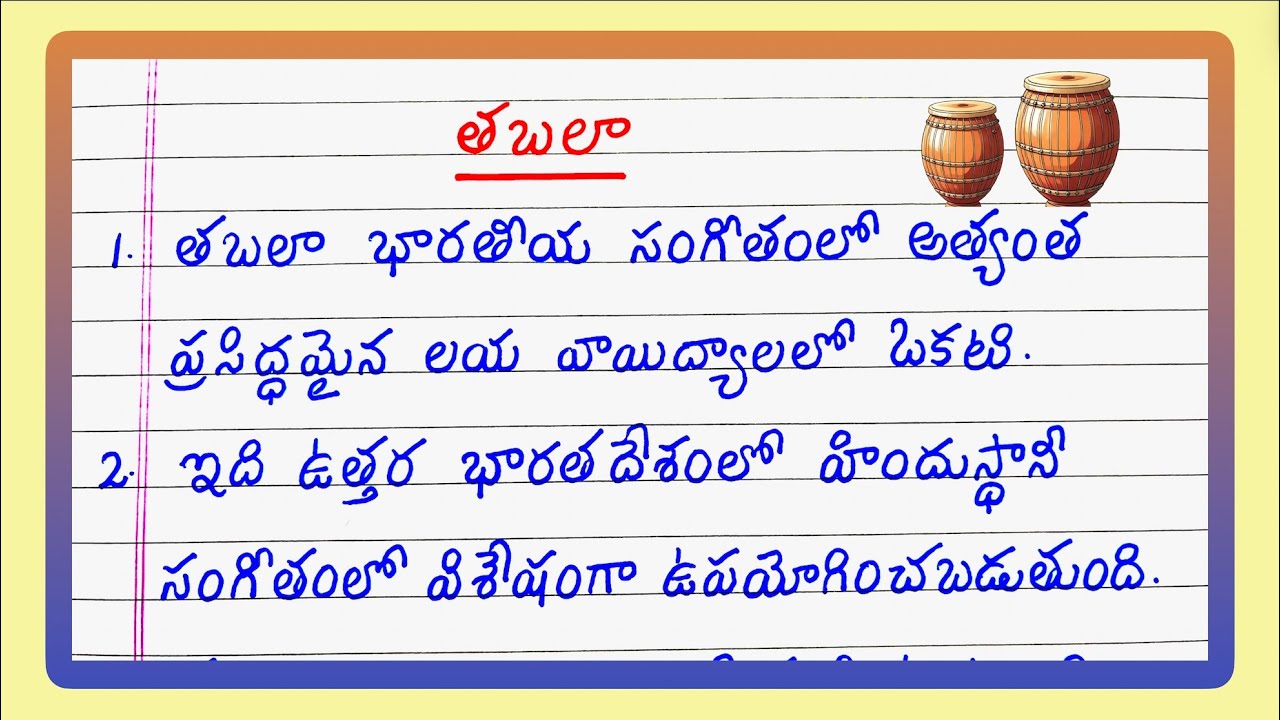 తబలా
1. తబలా భారతీయ సంగీతంలో అత్యంత
ప్రసిద్ధమైన లయ వాయిద్యాలలో ఒకటి.
2. ఇది ఉత్తర భారతదేశంలో హిందుస్థానీ
సంగీతంలో విశేషంగా ఉపయోగించబడుతుంది.